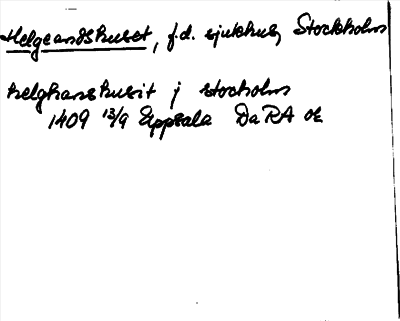 Helgeandshuset, f.d. sjukhus, Stockholm
helghanshusit j stocholm
1409 13/9 Uppsala DaRA or